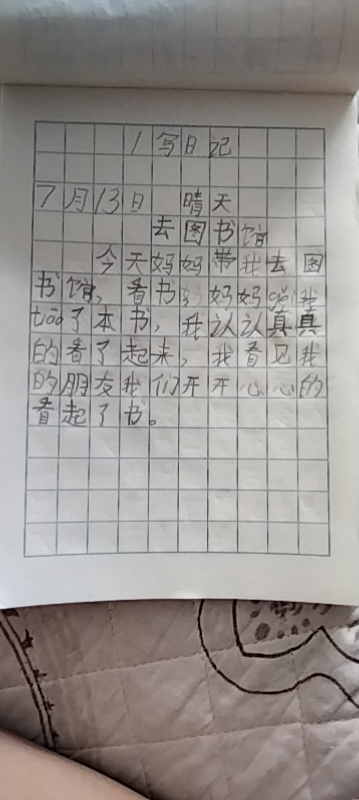 1 写日记
7月13日 晴天
去图书馆
今天妈妈带我去图
书馆，看书妈妈gěi我
tiāo了本书，我认认真真
的看了起来，我看见我
的朋友我们开开心心的
看起了书。